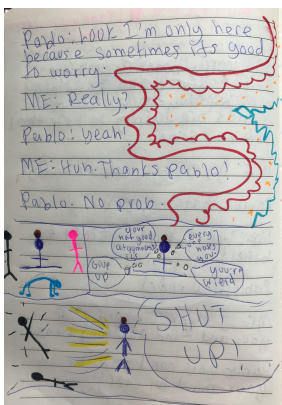 Pablo: Look I'm only here
because sometimes its good
to worry.
ME: Really?
Pablo: Yeah!
ME: Huh. Thanks pablo!
Pablo. No prob.
your
not good
at gymnastics
every
one
hates
you.
Give
UP
you're
wierd
SHUT
UP!